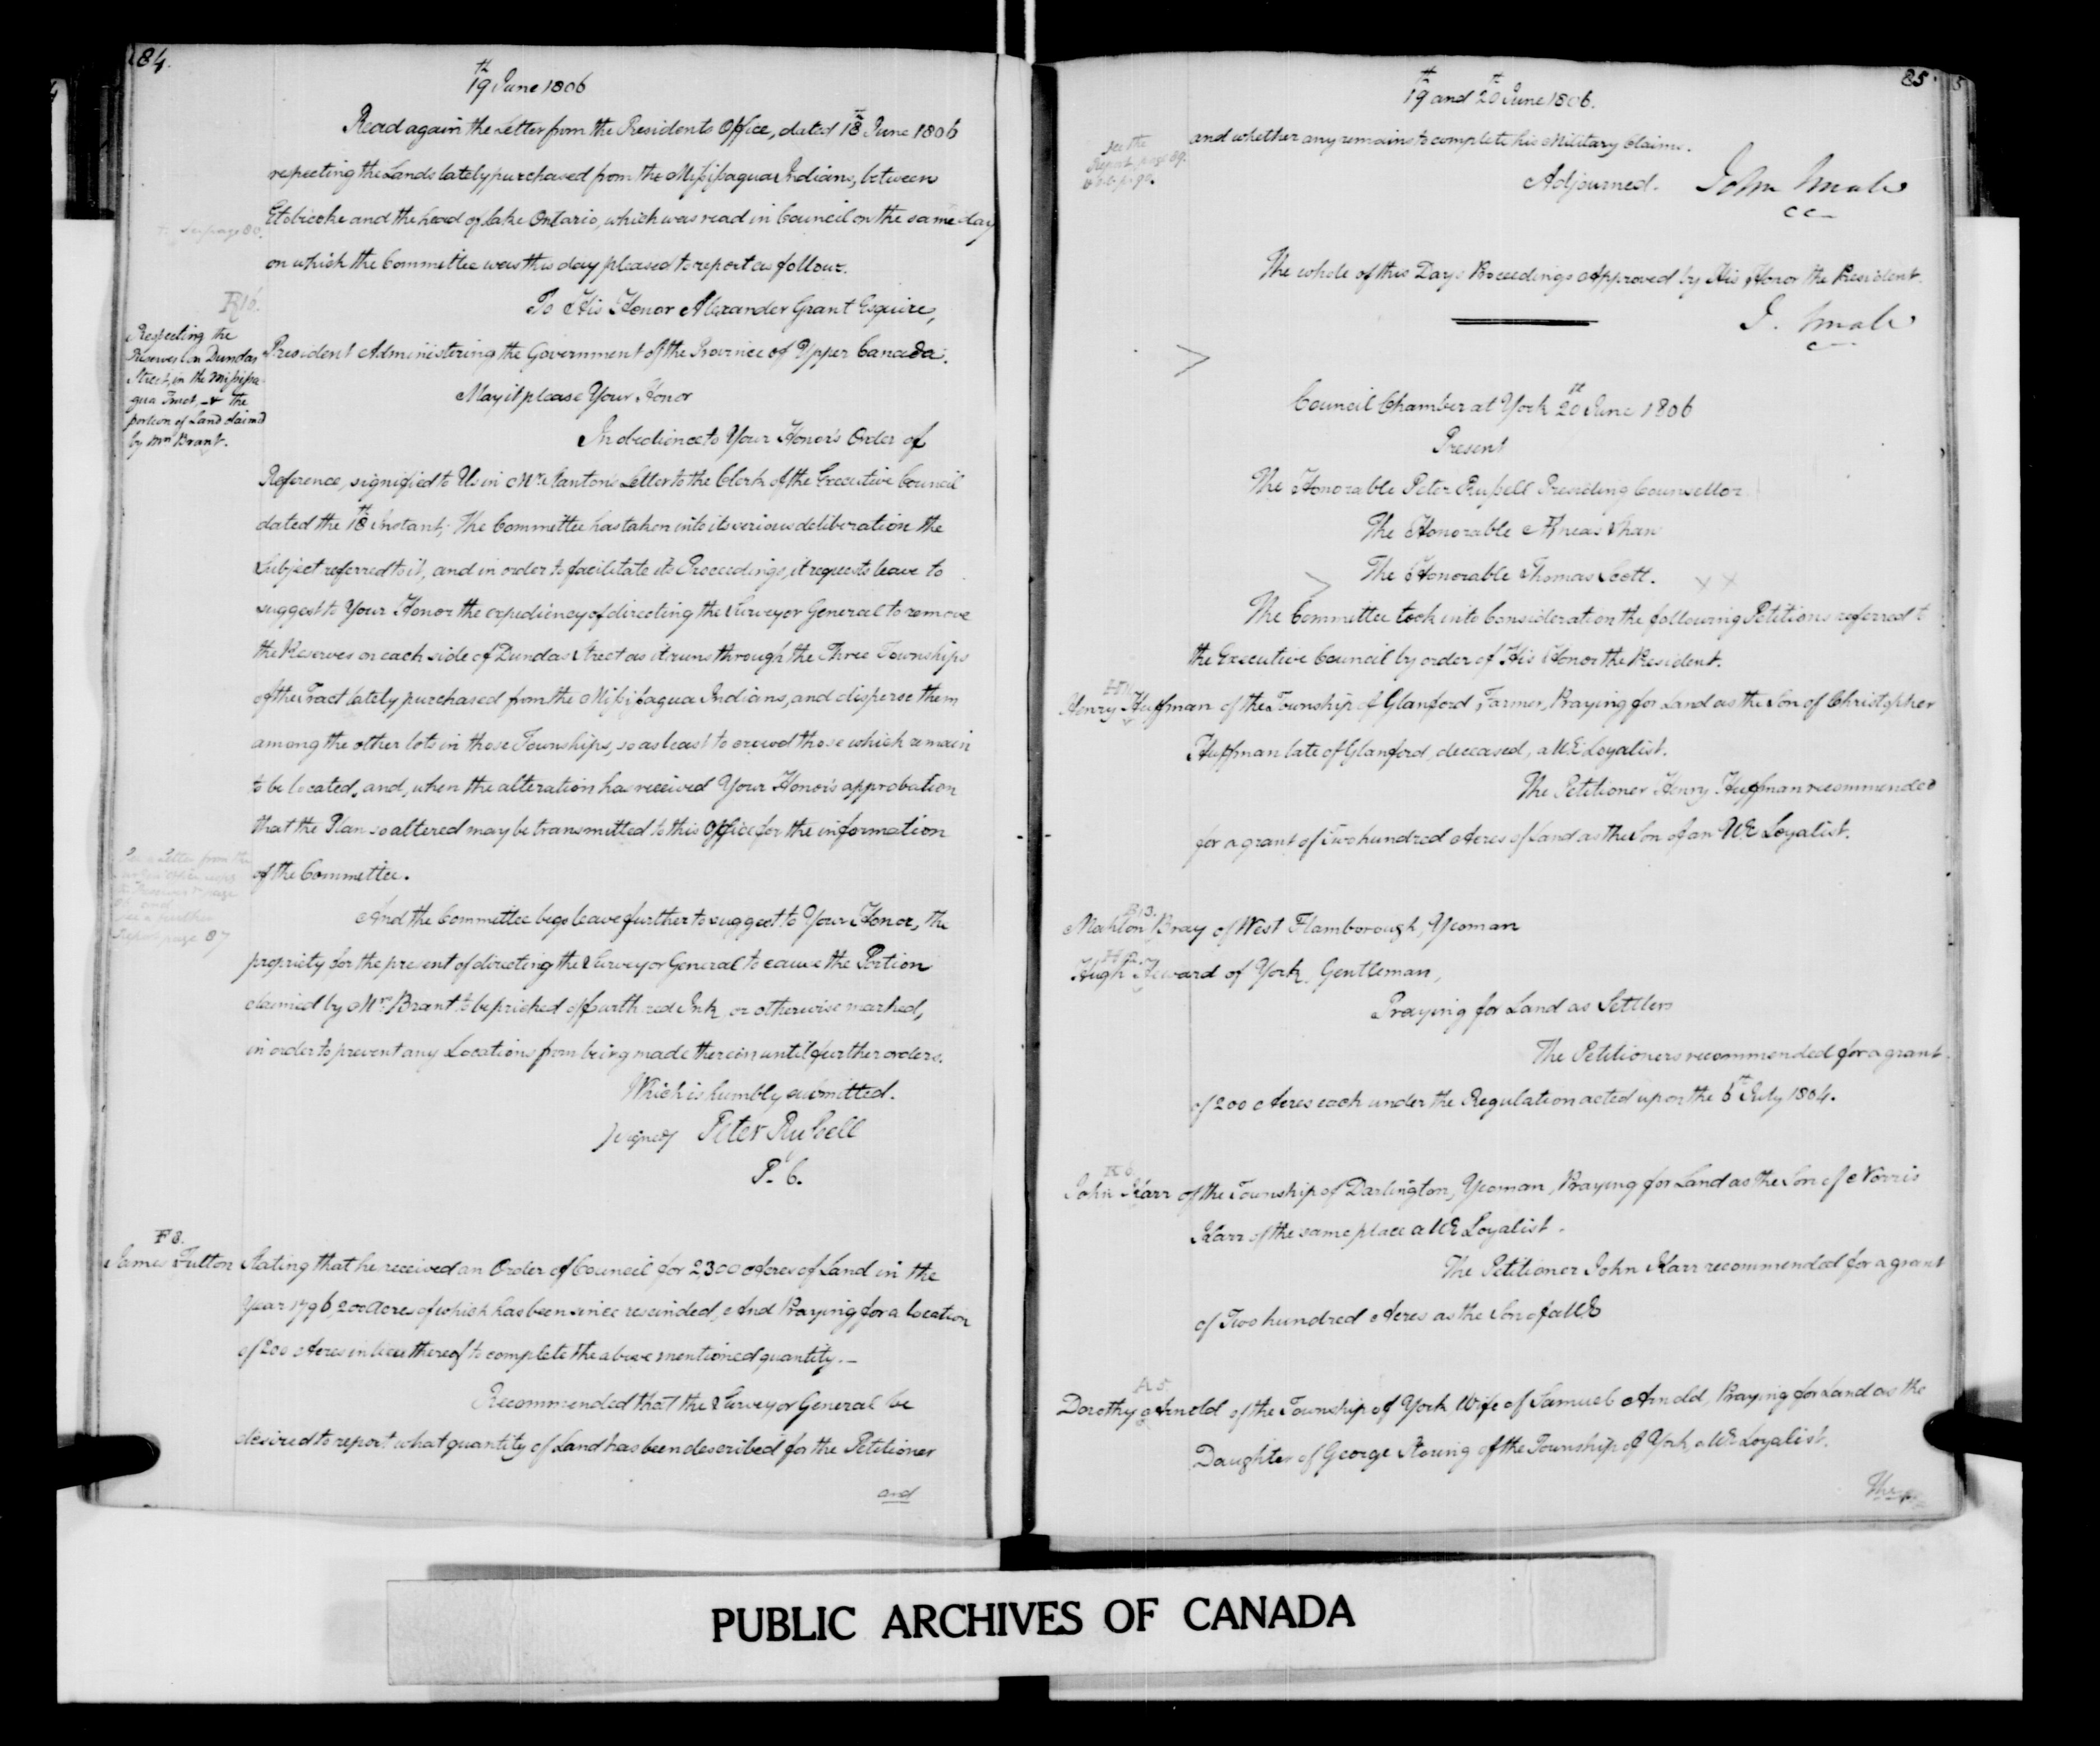 84.
19th June 1806
Read again the Letter from the Presidents Office, dated 18th June 1806
respecting the Lands lately purchased from the Missisagua Indians, between
Etobicoke and the head of Lake Ontario, which was read in Council on the same day
see page 80.
on which the Committee was this day pleased to report as follows.
To His Honor Alexander Grant Esquire,
Respecting the
Reserves on Dundas
Street, in the Missisa-
gua Tract, & the
portion of Land claimd
by Mrs Brant.
President Administering the Government of the Province of Upper Canada.
May it please Your Honor
In obedience to Your Honor's Order of
Reference, signified to Us in Mr Stanton's Letter to the Clerk of the Executive Council
dated the 18th Instant, The Committee has taken into its serious deliberation the
Subject referred to it, and in order to facilitate its Proceedings, it requests leave to
suggest to Your Honor the expediency of directing the Surveyor General to remove
the Reserves on each side of Dundas Street as it runs through the Three Townships
of the Tract lately purchased from the Missisagua Indians, and disperse them
among the other lots in those Townships, so as least to crowd those which remain
to be located, and, when the alteration has received Your Honor's approbation
that the Plan so altered may be transmitted to this Office for the information
of the Committee.
See a Letter from the
page
86 and
see a further
report page 87
And the Committee begs leave further to suggest to Your Honor, the
propriety for the present of directing the Surveyor General to cause the Portion
claimed by Mrs Brant to be pricked off with red Ink or otherwise marked,
in order to prevent any Locations from being made therein until further orders.
Which is humbly submitted.
signed Peter Russell
P. C.
F 8.
James Fulton Stating that he received an Order of Council for 2300 Acres of Land in the
Year 1796, 200 Acres of which has been since rescinded, And Praying for a location
of 200 Acres in lieu thereof to complete the above mentioned quantity.
Recommended that the Surveyor General be
desired to report what quantity of Land has been described for the Petitioner
and
85.
19th and 20th June 1806.
see the
Report page 89.
and whether any remains to complete his Military Claims.
Adjourned. John Small
CC
The whole of this Days Proceedings Approved by His Honor the President.
J. Small
C
Council Chamber at York 20th June 1806
Present
The Honorable Peter Russell Presiding Counsellor
The Honorable Æneas Shaw
The Honorable Thomas Scott.
The Committee took into Consideration the following Petitions referred to
the Executive Council by order of His Honor the President.
Henry Huffman of the Township of Glanford, Farmer, Praying for Land as the Son of Christopher
Huffman late of Glanford, deceased, a UE Loyalist.
The Petitioner Henry Huffman recommended
for a grant of Two hundred Acres of Land as the Son of an UE Loyalist.
B 13.
Mahlon Bray of West Flamborough, Yeoman
H 12.
Hugh Heward of York, Gentleman,
Praying for Land as Settlers
The Petitioners recommended for a grant
of 200 Acres each under the Regulation acted upon the 6th July 1804.
K 6
John Karr of the Township of Darlington, Yeoman, Praying for Land as the Son of Norris
Karr of the same place a UE Loyalist.
The Petitioner John Karr recommended for a grant
of Two hundred Acres as the Son of a UE
A 5
Dorothy Arnold of the Township of York, Wife of Samuel Arnold, Praying for Land as the
Daughter of George Storing of the Township of York, a UE Loyalist.
The
PUBLIC ARCHIVES OF CANADA